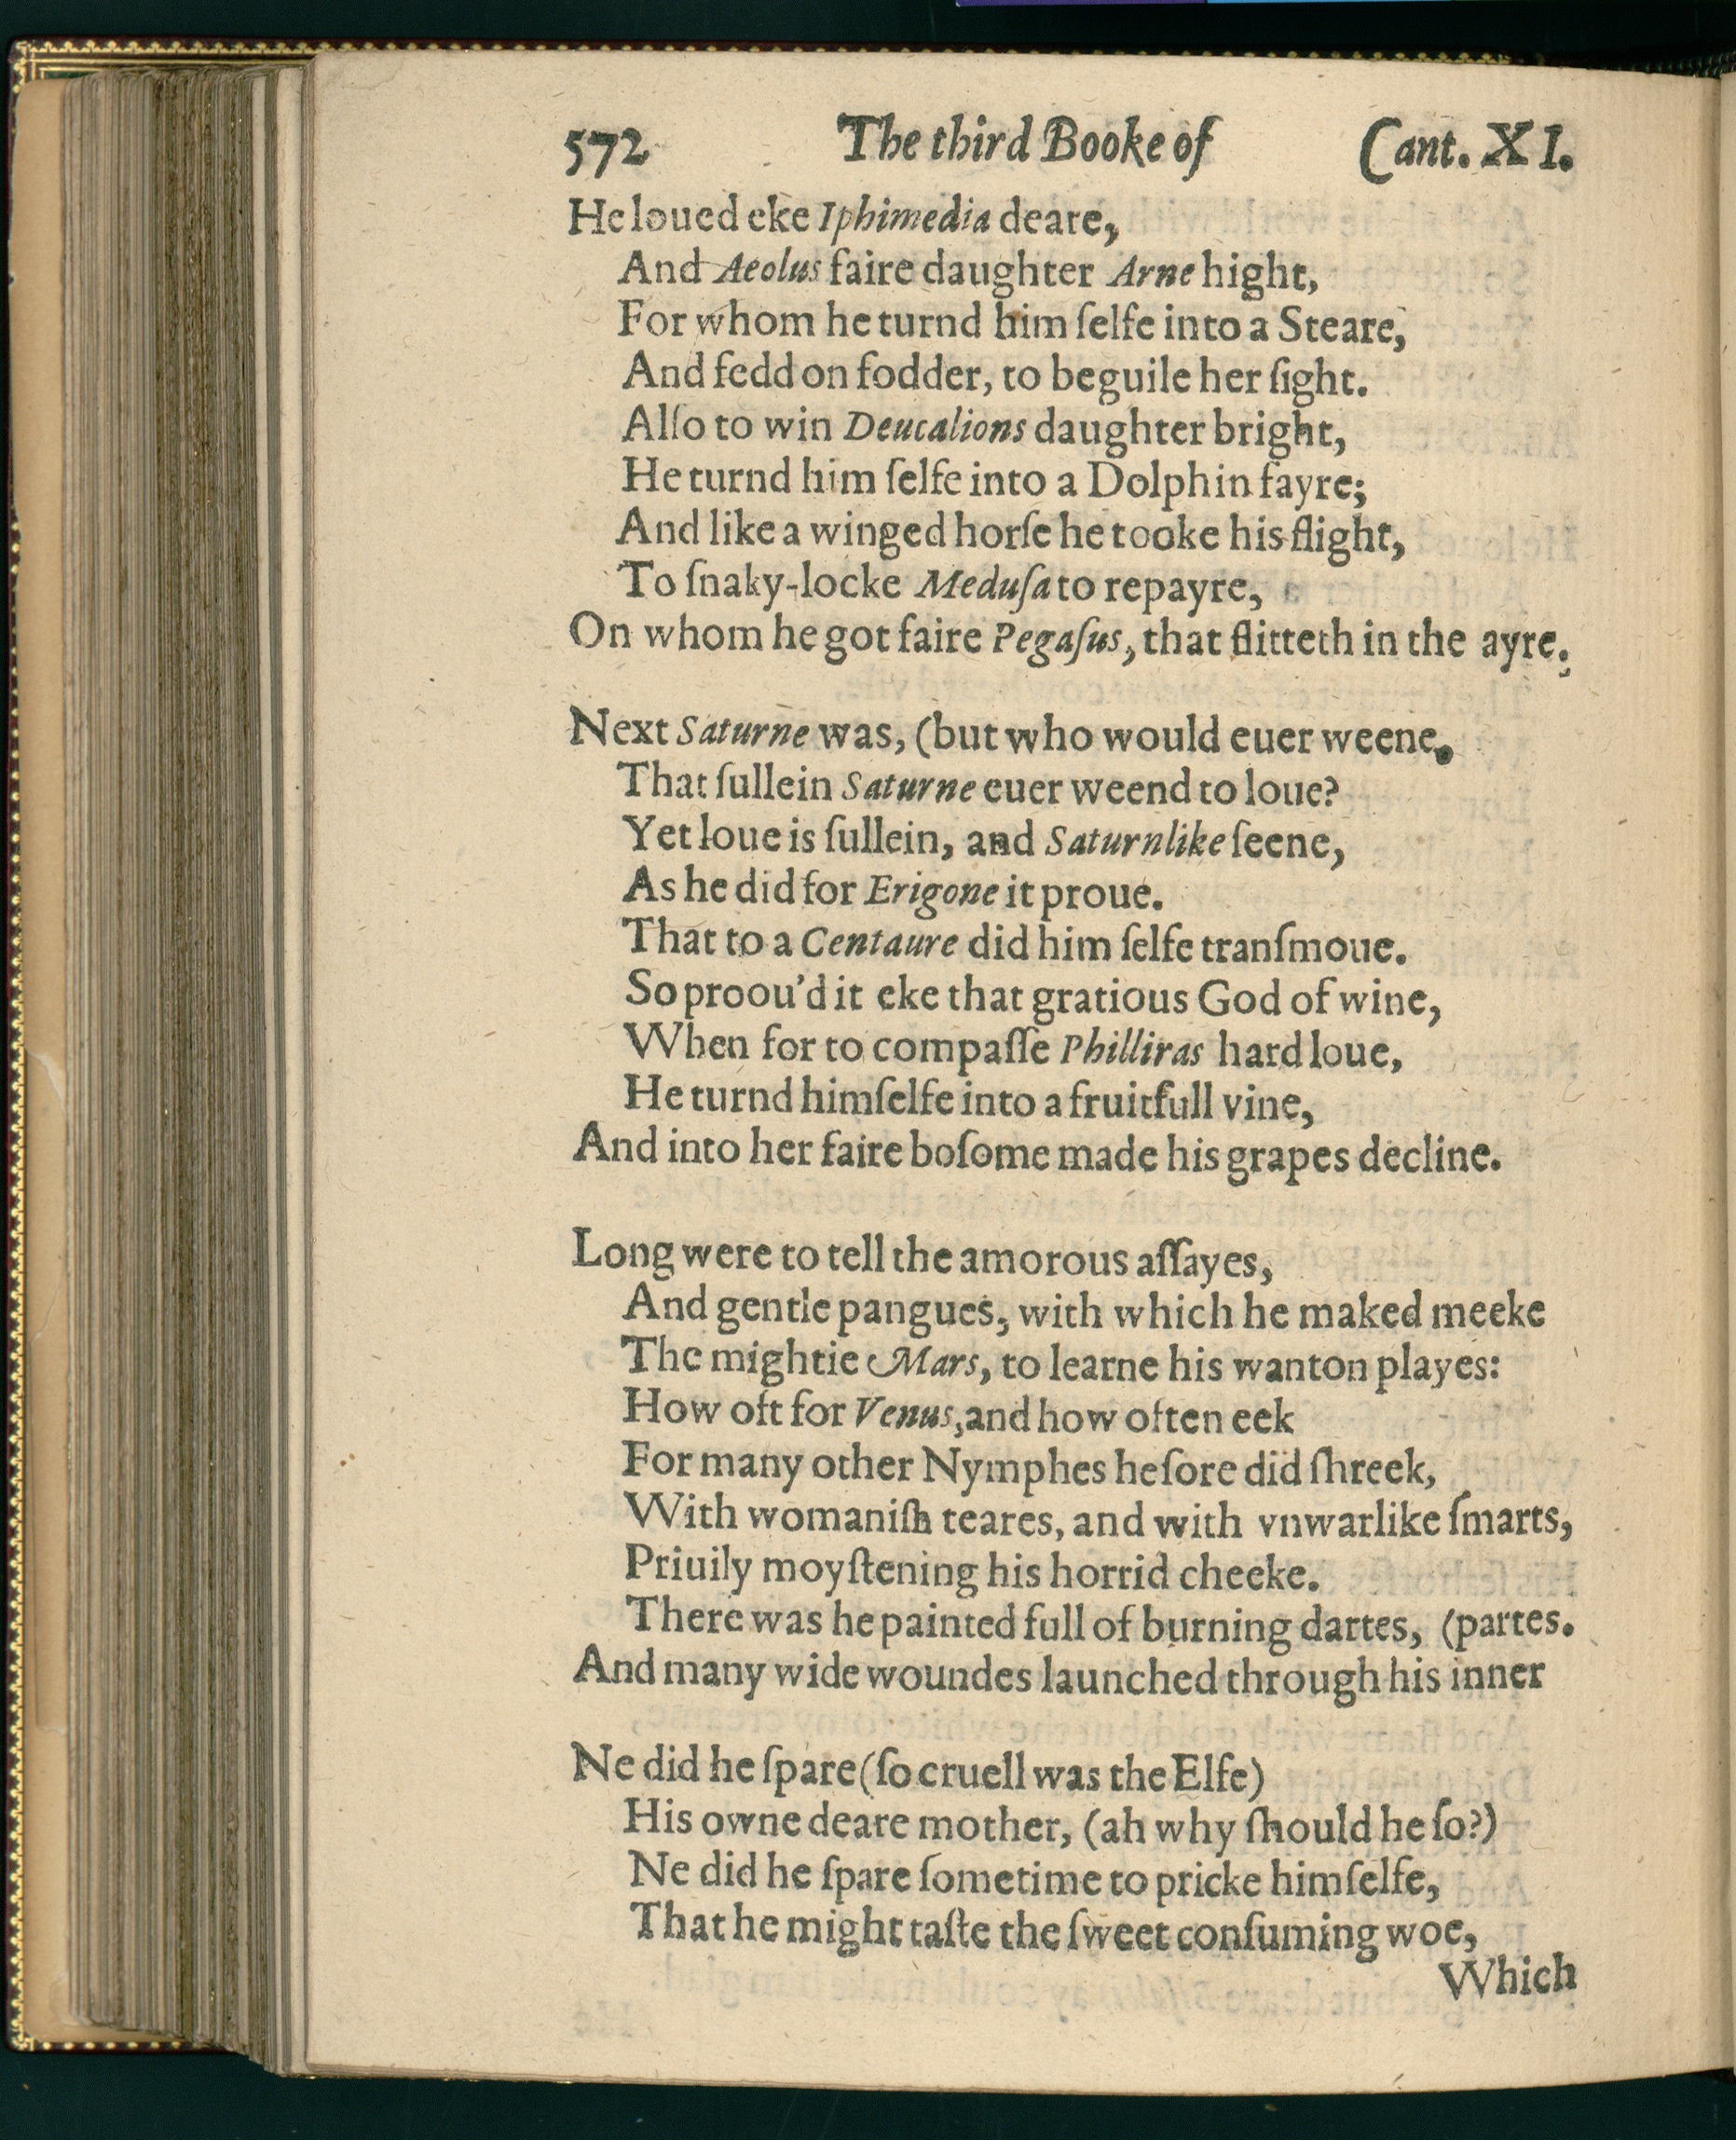 572 The third Booke of Cant. XI.
He loued eke Iphimedia deare,
And Aeolus faire daughter Arne hight,
For whom he turnd him ſelfe into a Steare,
And fedd on fodder, to beguile her ſight.
Alſo to win Deucalions daughter bright,
He turnd him ſelfe into a Dolphin fayre;
And like a winged horſe he tooke his flight,
To ſnaky-locke Meduſa to repayre,
On whom he got faire Pegaſus, that flitteth in the ayre.
Next Saturne was, (but who would euer weene,
That ſullein Saturne euer weend to loue?
Yet loue is ſullein, and Saturnlike ſeene,
As he did for Erigone it proue.
That to a Centaure did him ſelfe tranſmoue.
So proou'd it eke that gratious God of wine,
When for to compaſſe Philliras hard loue,
He turnd himſelfe into a fruitfull vine,
And into her faire boſome made his grapes decline.
Long were to tell the amorous aſſayes,
And gentle pangues, with which he maked meeke
The mightie Mars, to learne his wanton playes:
How oft for Venus, and how often eek
For many other Nymphes he ſore did ſhreek,
With womaniſh teares, and with vnwarlike ſmarts,
Priuily moyſtening his horrid cheeke.
There was he painted full of burning dartes, (partes.
And many wide woundes launched through his inner
Ne did he ſpare (ſo cruell was the Elfe)
His owne deare mother, (ah why ſhould he ſo?)
Ne did he ſpare ſometime to pricke himſelfe,
That he might taſte the ſweet conſuming woe,
Which